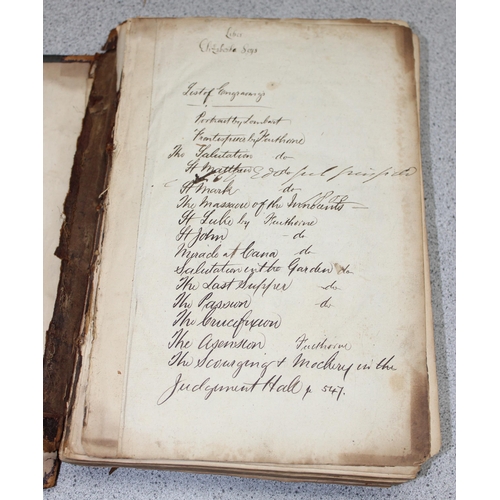 List of Engravings
Portrait by Lombart
Frontispiece by Faithorne
The Salutation do
St Matthew
St Mark do
The Massacre of the Innocents
St Luke by Faithorne
St John - do
Myracle at Cana do
Salutation in the Garden do
The Last Supper do
The Passion do
The Crucifixion
The Asension Faithorne
The Scourging & Mockery in the
Judgment Hall p 547.